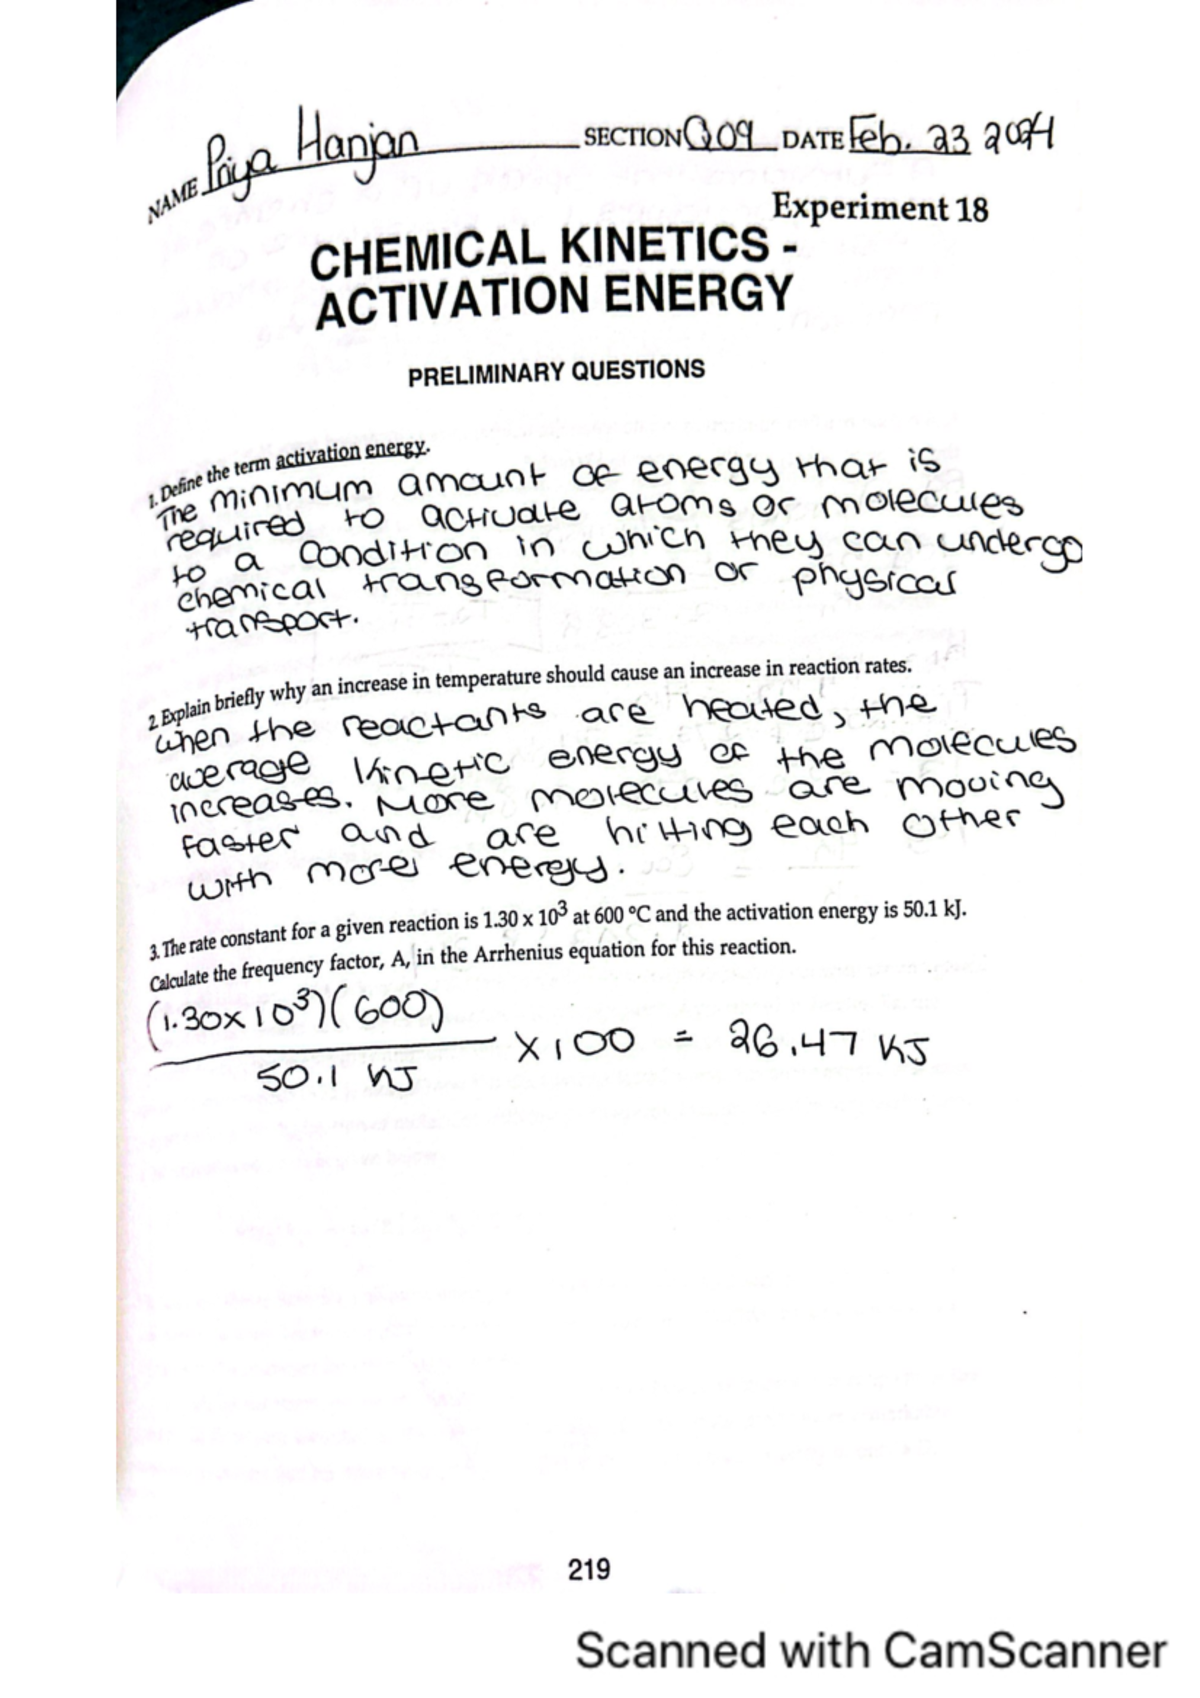 NAME Priya Hanjan SECTION Q09 DATE Feb. 23 2024
Experiment 18
CHEMICAL KINETICS -
ACTIVATION ENERGY
PRELIMINARY QUESTIONS
1. Define the term activation energy.
The minimum amount of energy that is
required to activate atoms or molecules
to a condition in which they can undergo
chemical transformation or physical
transport.
2. Explain briefly why an increase in temperature should cause an increase in reaction rates.
when the reactants are heated, the
average kinetic energy of the molecules
increases. More molecules are moving
faster and are hitting each other
with more energy.
3. The rate constant for a given reaction is 1.30 x 10³ at 600 °C and the activation energy is 50.1 kJ.
Calculate the frequency factor, A, in the Arrhenius equation for this reaction.
(1.30x10³)(600)
x100 = 26.47 KJ
50.1 KJ
219
Scanned with CamScanner